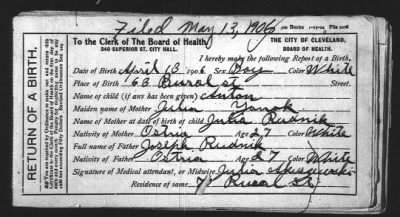 Filed May 13, 1906
500 Books
To the Clerk of The Board of Health,
340 SUPERIOR ST. CITY HALL.
THE CITY OF CLEVELAND,
BOARD OF HEALTH.
I hereby make the following Report of a Birth.
Date of Birth April 13 1906 Sex Boy Color White
Place of Birth 63 Rural st Street.
Name of child (if any has been given) Anton
Maiden name of Mother Julia Yanok
Name of Mother at date of birth of child Julia Rudnik
Nativity of Mother Ostria Age 27 Color White
Full name of Father Joseph Rudnik
Nativity of Father Ostria Age 27 Color White
Signature of Medical attendant, or Midwife Julia
Residence of same 71 Rural St
RETURN OF A BIRTH.